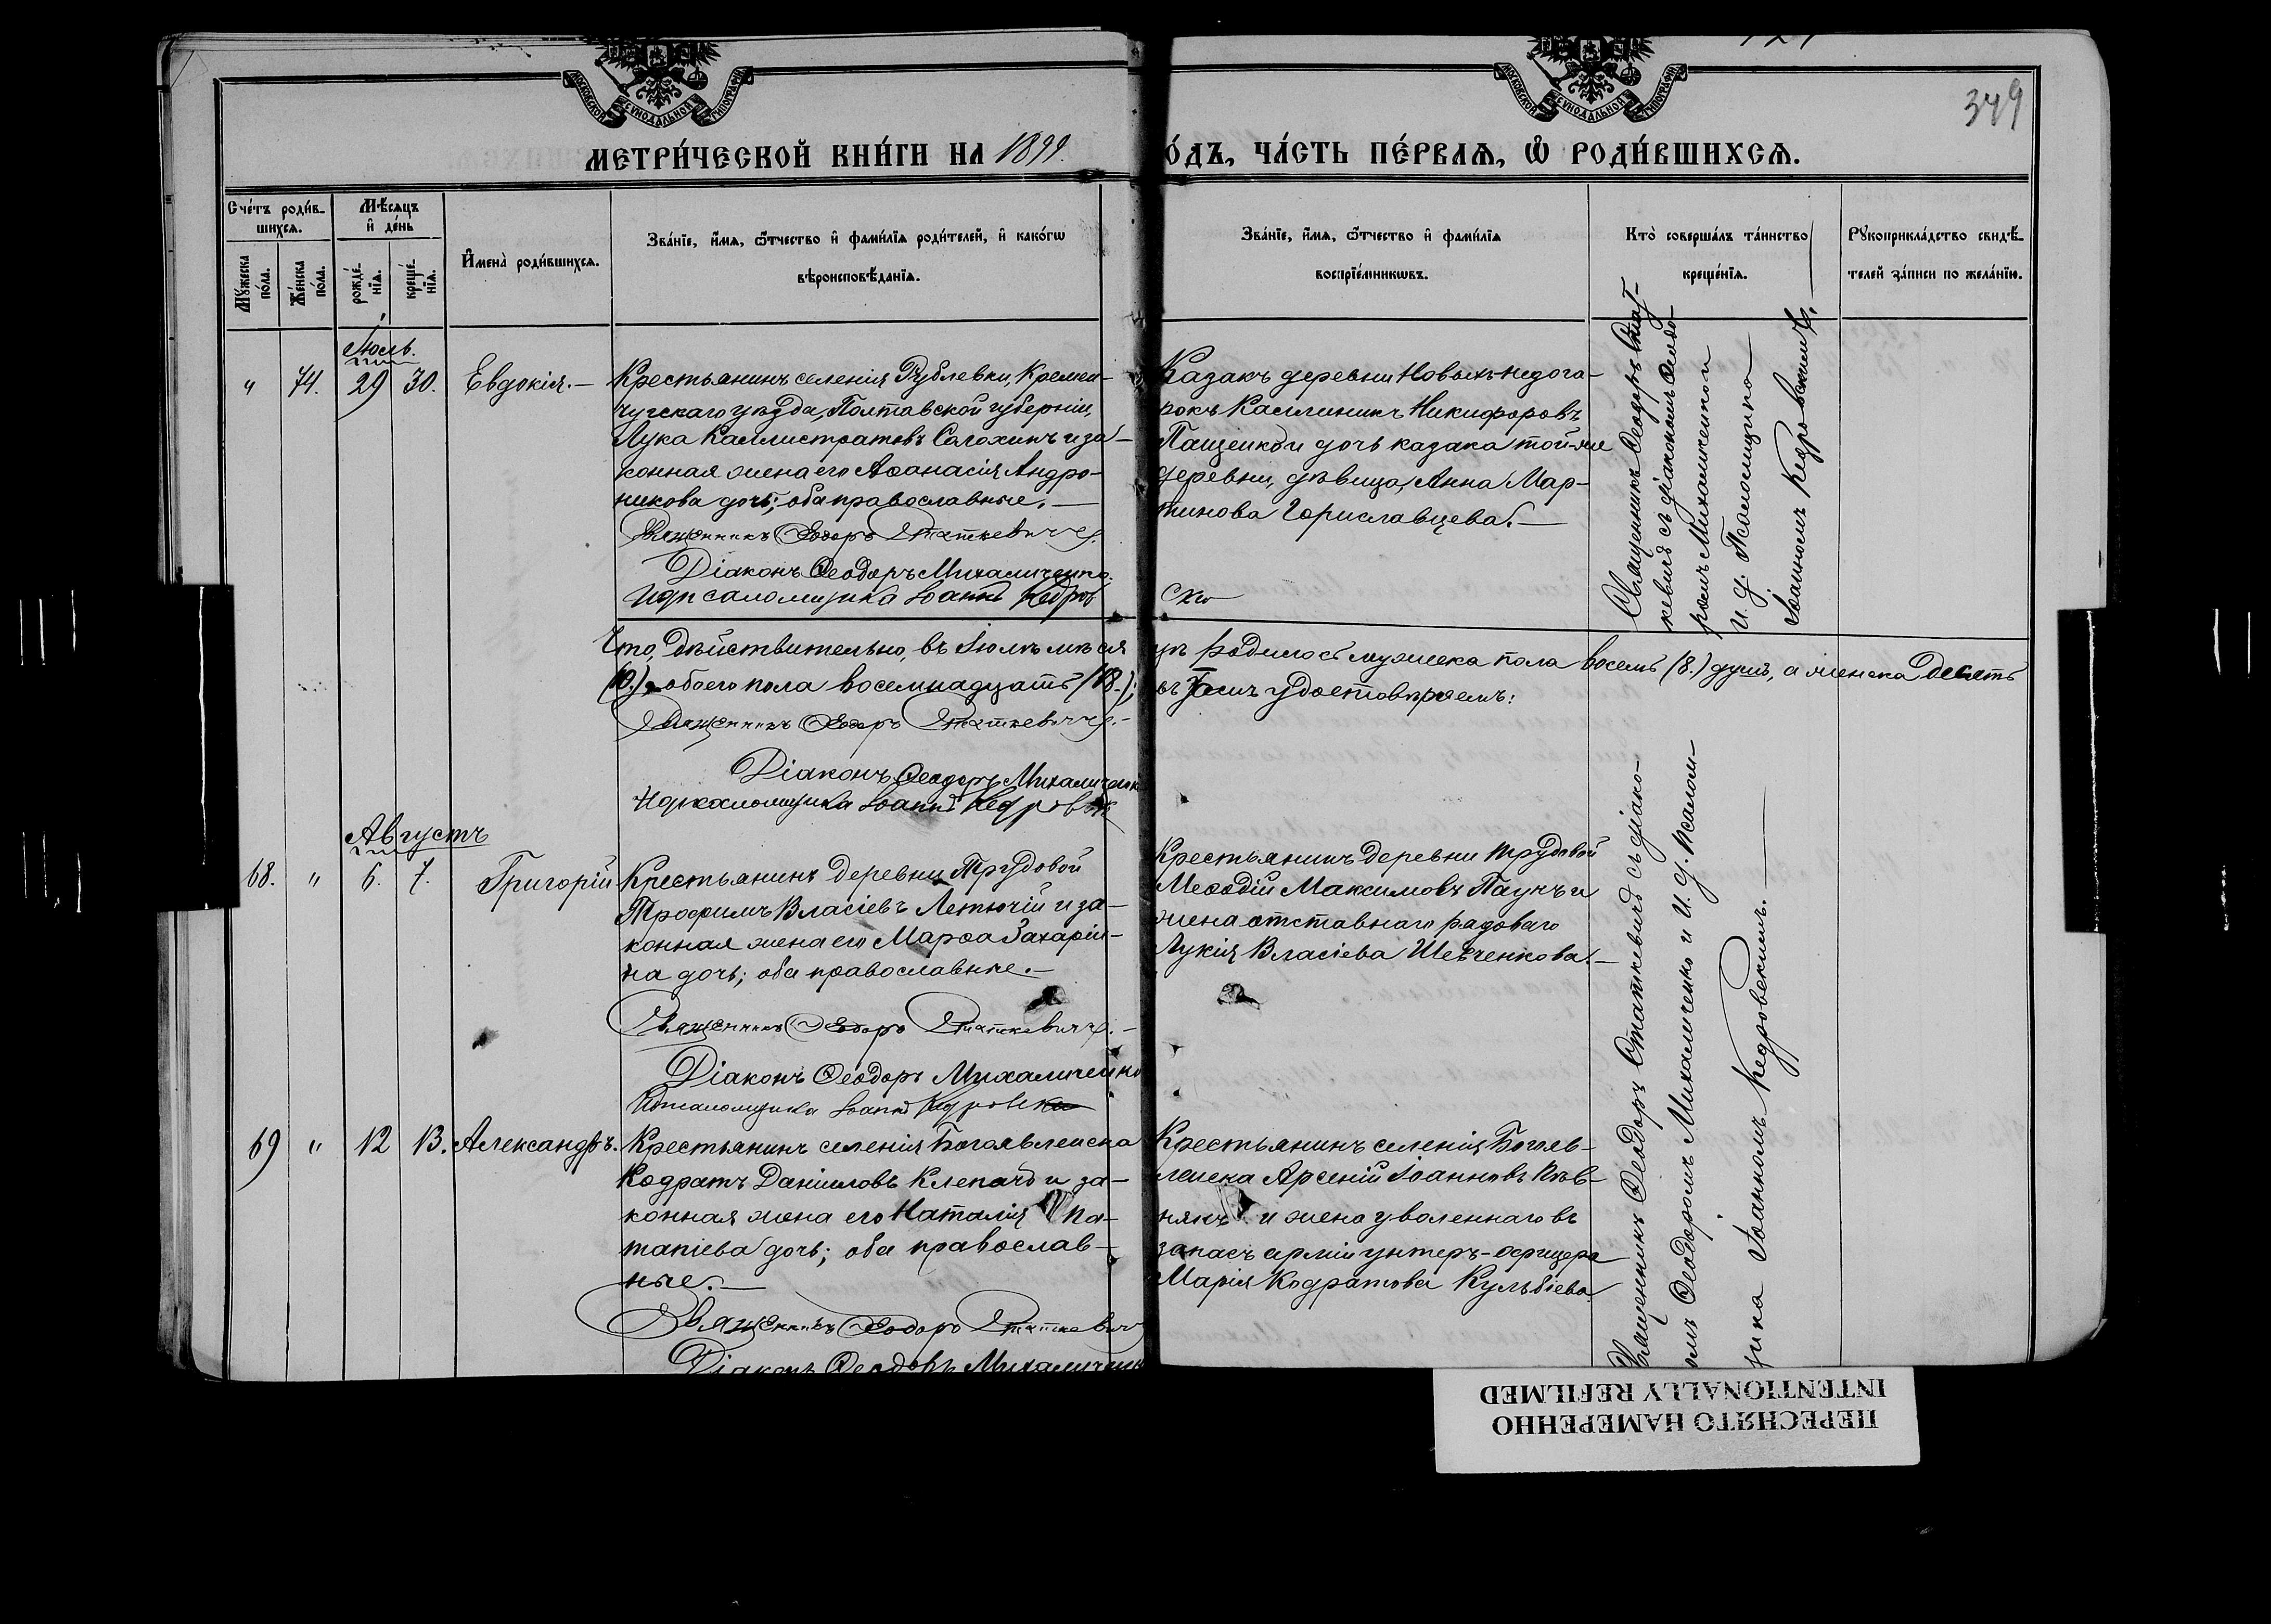 349
МОСКОВСКОЙ СѴНОДАЛЬНОЙ ТИПОГРАФІИ
МОСКОВСКОЙ СѴНОДАЛЬНОЙ ТИПОГРАФІИ
МЕТРИ́ЧЕСКОЙ КНИ́ГИ НА 1899.
О́ДЪ, ЧА́СТЬ ПЕ́РВАѦ, Ѽ РОДИ́ВШИХСѦ.
Сче́тъ роди́в-
шихсѧ.
Му́жеска
по́ла.
Же́нска
по́ла.
Мѣ́сяцъ
и де́нь
рожде́-
нїѧ.
креще́-
нїѧ.
Имена̀ роди́вшихсѧ.
Зва́нїе, и́мѧ, ѻ҆́тчество и фами́лїѧ роди́телей, и како́гѡ
вѣроисповѣ́данїѧ.
Зва́нїе, и́мѧ, ѻ҆́тчество и фами́лїѧ
воспрїе́мникѡвъ.
Кто̀ соверша́лъ та́инство
креще́нїѧ.
Рукоприкла́дство свидѣ́-
телей за́писи по жела́нїю.
Іюль.
" 74. 29 30. Евдокія.—
Крестьянинъ селенія Рублевки, Кремен-
чугскаго уѣзда, Полтавской губерніи,
Лука Каллистратовъ Солохинъ и за-
конная жена его Аѳанасія Андро-
никова дочь; оба православные.—
Священникъ Ѳеодоръ Статкевичъ.
Діаконъ Ѳеодоръ Михаличенко.
И д псаломщика Іоаннъ Кедров
ско
Казакъ деревни Новыхъ-недога-
рокъ Каллиникъ Никифоровъ
Пащенко и дочь казака той-же
деревни, дѣвица, Анна Мар-
тинова Гориславцева.—
Священникъ Ѳеодоръ Стат-
кевичъ съ діакономъ Ѳеодо-
ромъ Михаличенко и
И. д. Псаломщика
Іоанномъ Кедровскимъ.—
Что, дѣйствительно, въ Іюлѣ мѣся
цѣ родилось мужеска пола восемь (8.) душъ, а женска десять
(10.) обоего пола восемнадцать (18.);
въ семъ удостовѣряемъ:
Священникъ Ѳеодоръ Статкевичъ.—
Діаконъ Ѳеодоръ Михаличенко
И д псаломщика Іоаннъ Кедровск
Августъ
68. " 6. 7. Григорій
Крестьянинъ деревни Трудовой
Трофимъ Власіевъ Летючій и за-
конная жена его Марѳа Захаріи-
на дочь; оба православные.—
Священникъ Ѳеодоръ Статкевичъ.—
Діаконъ Ѳеодоръ Михаличенко
И д псаломщика Іоаннъ Кедровск
Крестьянинъ деревни Трудовой
Меѳодій Максимовъ Паунъ и
жена отставнаго рядоваго
Лукія Власіева Шевченкова.—
Священникъ Ѳеодоръ Статкевичъ съ діако-
номъ Ѳеодоромъ Михаличенко и И. д. Псалом-
щика Іоанномъ Кедровскимъ.—
69 " 12 13. Александръ.
Крестьянинъ селенія Богоявленска
Кодратъ Даніиловъ Клепачъ и за-
конная жена его Наталія Па-
тапіева дочь; оба православ-
ные.—
Священникъ Ѳеодоръ Статкевич
Діаконъ Ѳеодоръ Михаличенко
Крестьянинъ селенія Богояв-
ленска Арсеній Іоанновъ Пѣв-
някъ и жена уволеннаго въ
запасъ арміи унтеръ-офицера
Марія Кодратова Кульбіева
ПЕРЕСНЯТО НАМЕРЕННО
INTENTIONALLY REFILMED